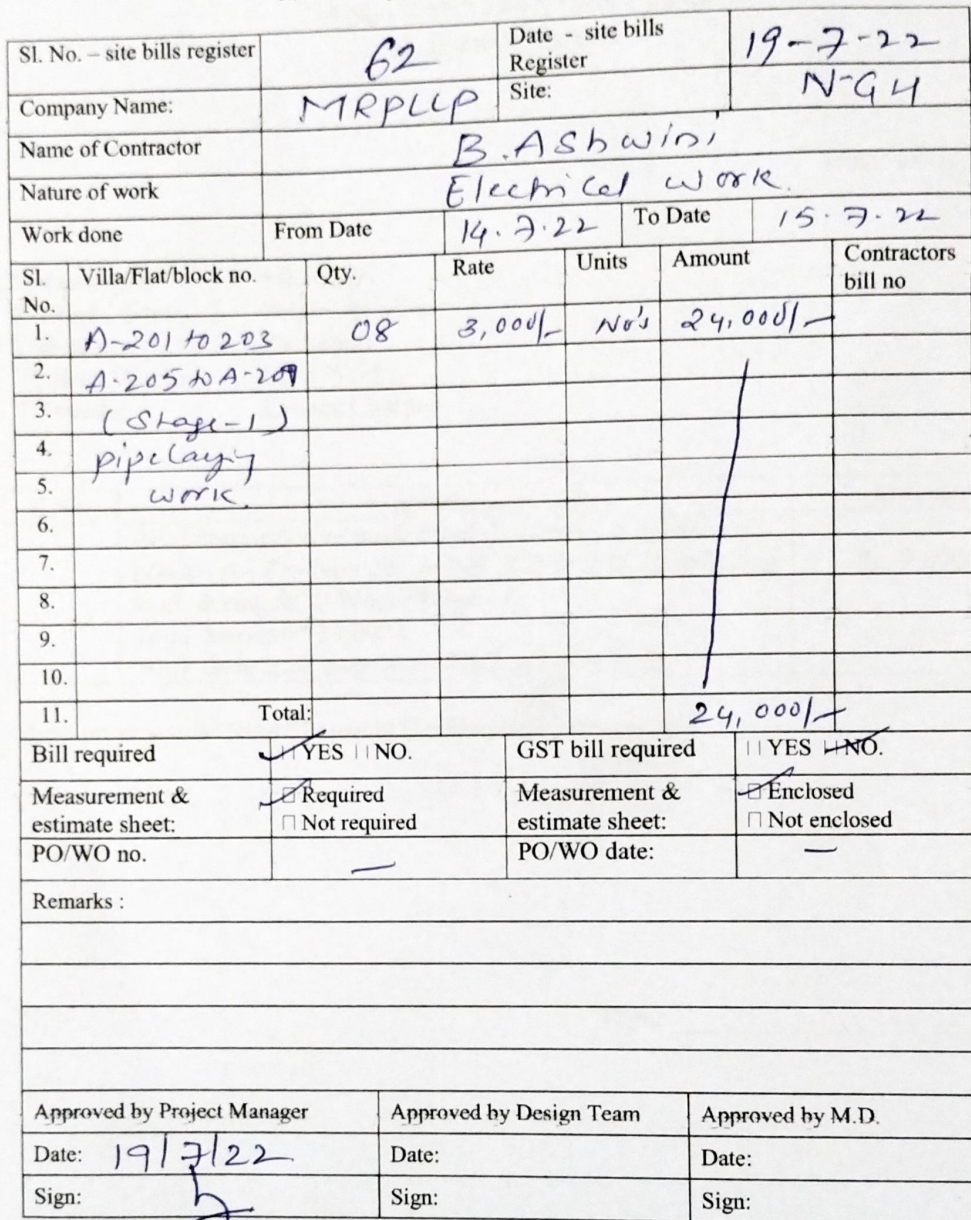 Sl. No. – site bills register 62 Date - site bills Register 19-7-22
Company Name: MRPLLP Site: N-GH
Name of Contractor B. Ashwini
Nature of work Electrical work.
Work done From Date 14.7.22 To Date 15.7.22
Sl. No. Villa/Flat/block no. Qty. Rate Units Amount Contractors bill no
1. A-201 to 203 08 3,000/- No's 24,000/-
2. A-205 to A-209
3. (Stage-1)
4. pipelaying
5. work.
6.
7.
8.
9.
10.
11. Total: 24,000/-
Bill required YES NO. GST bill required YES NO.
Measurement & estimate sheet: Required Not required Measurement & estimate sheet: Enclosed Not enclosed
PO/WO no. — PO/WO date: —
Remarks :
Approved by Project Manager Approved by Design Team Approved by M.D.
Date: 19/7/22 Date: Date:
Sign: Sign: Sign: